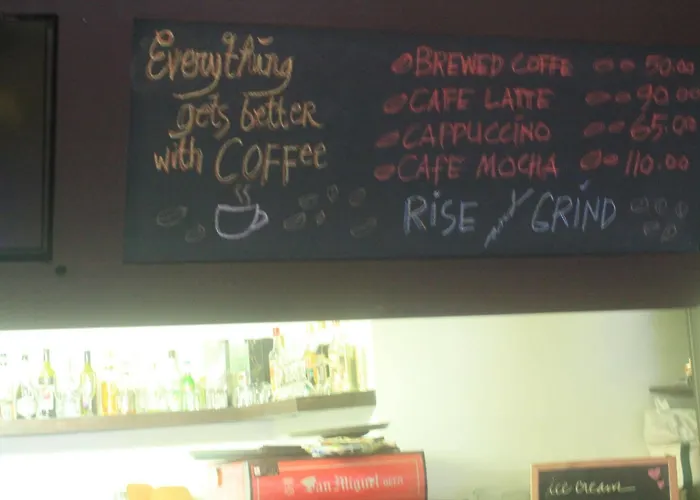 Everything
gets better
with COFFee
BREWED COFFE 50.00
CAFE LATTE 90.00
CAPPUCCINO 65.00
CAFE MOCHA 110.00
RISE and GRIND
San Miguel BEER
ice cream